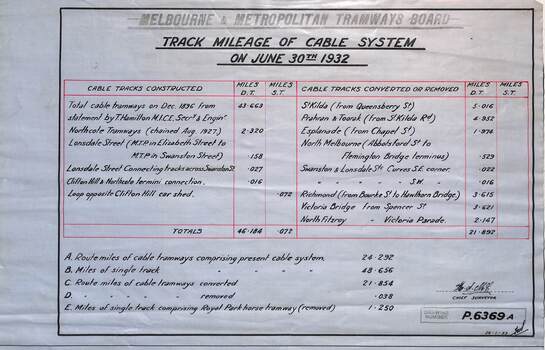 MELBOURNE & METROPOLITAN TRAMWAYS BOARD
TRACK MILEAGE OF CABLE SYSTEM
ON JUNE 30TH 1932
CABLE TRACKS CONSTRUCTED MILES D.T. MILES S.T. CABLE TRACKS CONVERTED OR REMOVED MILES D.T. MILES S.T.
Total cable tramways on Dec. 1896 from
statement by T. Hamilton M.I.C.E. Secry & Enginr. 43·663
Northcote Tramways (chained Aug. 1927.) 2·320
Lonsdale Street (M.T.P. in Elizabeth Street to
M.T.P. in Swanston Street) ·158
Lonsdale Street Connecting tracks across Swanston St. ·027
Clifton Hill & Northcote termini connection. ·016
Loop opposite Clifton Hill car shed. ·072
TOTALS 46·184 ·072
St Kilda (from Queensberry St) 5·016
Prahran & Toorak (from St Kilda Rd) 4·952
Esplanade (from Chapel St) 1·974
North Melbourne (Abbotsford St to
Flemington Bridge terminus) ·529
Swanston & Lonsdale Sts Curves S.E. corner. ·022
" " " S.W. " ·016
Richmond (from Bourke St to Hawthorn Bridge) 3·615
Victoria Bridge from Spencer St 3·621
North Fitzroy " Victoria Parade. 2·147
21·892
A. Route miles of cable tramways comprising present cable system. 24·292
B. Miles of single track " " " " " 48·656
C. Route miles of cable tramways converted 21·854
D. " " " " removed ·038
E. Miles of single track comprising Royal Park horse tramway (removed) 1·250
CHIEF SURVEYOR
DRAWING NUMBER P.6369A